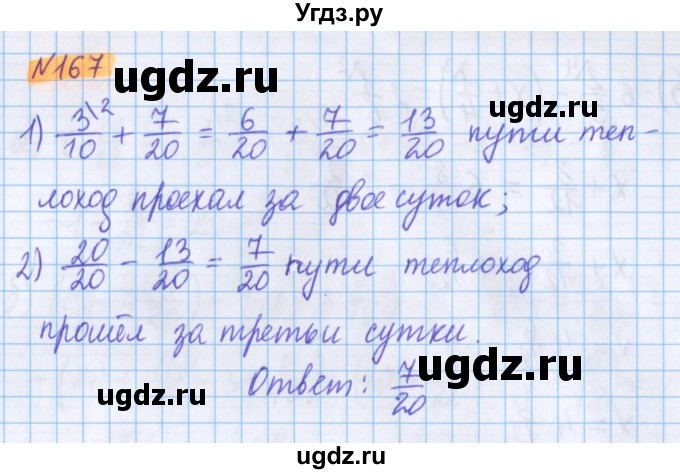 Угдз.ру
№167
ugdz.ru
1) 3\2/10 + 7/20 = 6/20 + 7/20 = 13/20 пути теп-
лоход проехал за двое суток;
2) 20/20 - 13/20 = 7/20 пути теплоход
прошёл за третьи сутки.
Ответ: 7/20
ugdz.ru
ugdz.ru
ugdz.ru
ugdz.ru
ugdz.ru
ugdz.ru
ugdz.ru